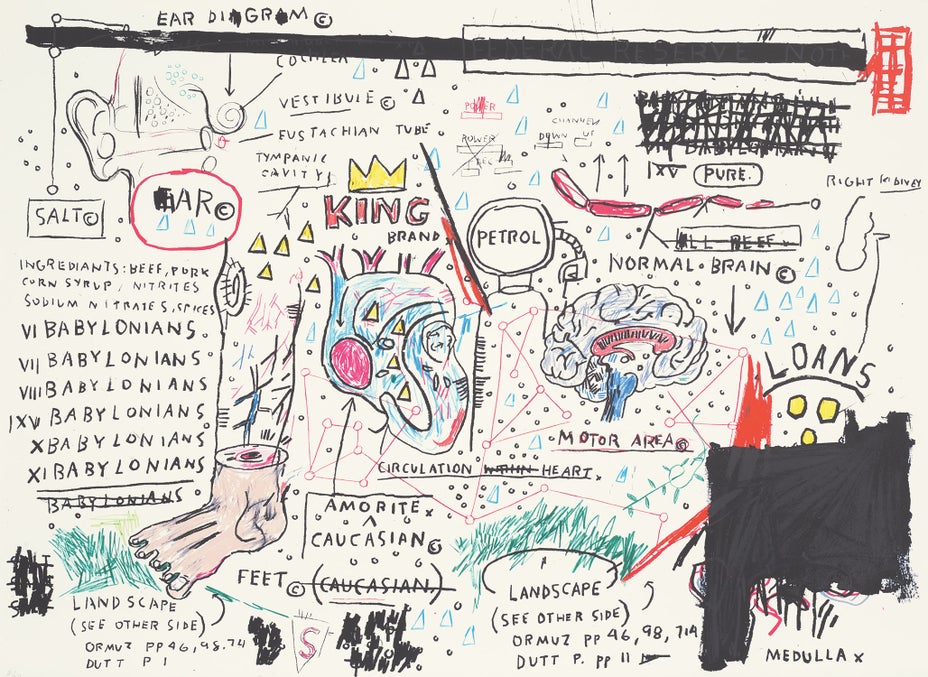 EAR DIAGRAM ©
FEDERAL RESERVE NOTE
COCHLEA
VESTIBULE ©
EUSTACHIAN TUBE
TYMPANIC
CAVITY
POWER
CHANNEL
POWER
DOWN UP
SEC
IXV PURE.
RIGHT KIDNEY
SALT ©
EAR ©
KING
BRAND X
PETROL
ALL BEEF
NORMAL BRAIN ©
INGREDIANTS: BEEF, PORK
CORN SYRUP, NITRITES
SODIUM NITRATES, SPICES
VI BABYLONIANS.
VII BABYLONIANS
VIII BABYLONIANS
IXV BABYLONIANS
X BABYLONIANS
XI BABYLONIANS
BABYLONIANS
LOANS
MOTOR AREA ©
CIRCULATION WITHIN HEART.
AMORITE X
CAUCASIAN ©
FEET © (CAUCASIAN.)
LANDSCAPE
(SEE OTHER SIDE)
ORMUZ PP 46, 98. 714
DUTT P 1
S
LANDSCAPE
(SEE OTHER SIDE)
ORMUZ PP 46, 98, 714
DUTT P. PP 11
MEDULLA X